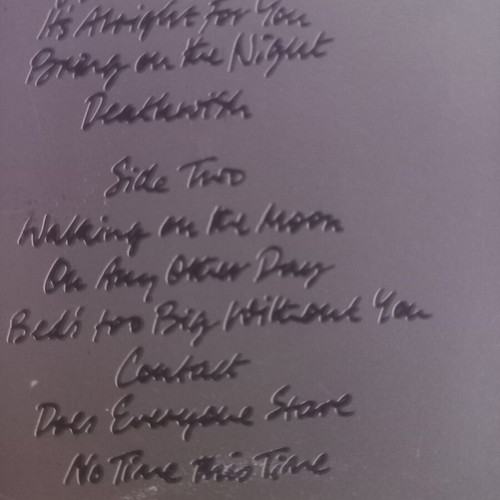 Its Alright For You
Bring on the Night
Deathwish
Side Two
Walking on the Moon
On Any Other Day
Bed's too Big Without You
Contact
Does Everyone Stare
No Time This Time